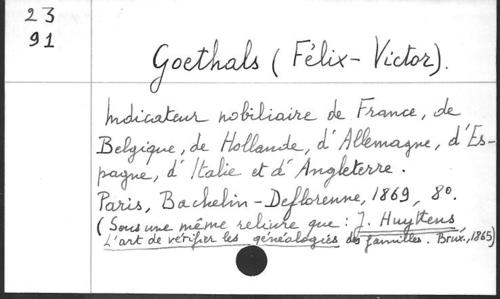 23
91
Goethals (Félix-Victor).
Indicateur nobiliaire de France, de
Belgique, de Hollande, d'Allemagne, d'Es-
pagne, d'Italie et d'Angleterre.
Paris, Bachelin-Deflorenne, 1869, 8º.
(Sous une même reliure que : J. Huyttens
L'art de vérifier les généalogies des familles. Brux., 1865)